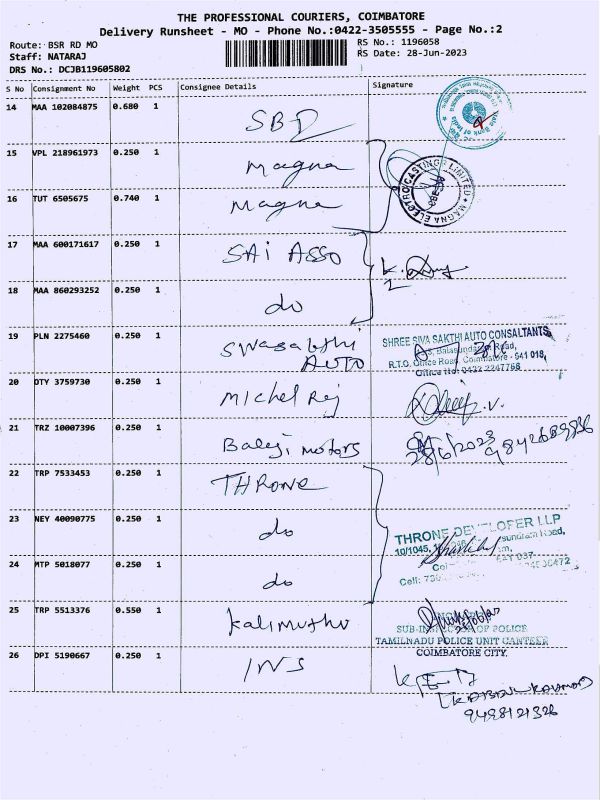 THE PROFESSIONAL COURIERS, COIMBATORE
Delivery Runsheet - MO - Phone No.:0422-3505555 - Page No.:2
Route: BSR RD MO
RS No.: 1196058
Staff: NATARAJ
RS Date: 28-Jun-2023
DRS No.: DCJB119605802
S No Consignment No Weight PCS Consignee Details Signature
14 MAA 102084875 0.680 1 SBI
15 VPL 218961973 0.250 1 Magna
MAGNA ELECTRO CASTING LIMITED
16 TUT 6505675 0.740 1 Magna
17 MAA 600171617 0.250 1 SAI ASSO
18 MAA 860293252 0.250 1 do
19 PLN 2275460 0.250 1 Swasakthi AUTO
SHREE SIVA SAKTHI AUTO CONSALTANTS
Road,
R.T.O. Office Road, Coimbatore - 641 018,
Office No: 0422 2247766
20 DTY 3759730 0.250 1 Michel Rej
21 TRZ 10007396 0.250 1 Balaji motors
28/6/2023
22 TRP 7533453 0.250 1 THRONE
23 NEY 40090775 0.250 1 do
THRONE DEVELOPER LLP
10/1045,
24 MTP 5018077 0.250 1 do
Cell:
25 TRP 5513376 0.550 1 Kalimuthu
SUB-INSPECTOR OF POLICE
TAMILNADU POLICE UNIT CANTEEN
COIMBATORE CITY.
26 DPI 5190667 0.250 1 INS
9498121326